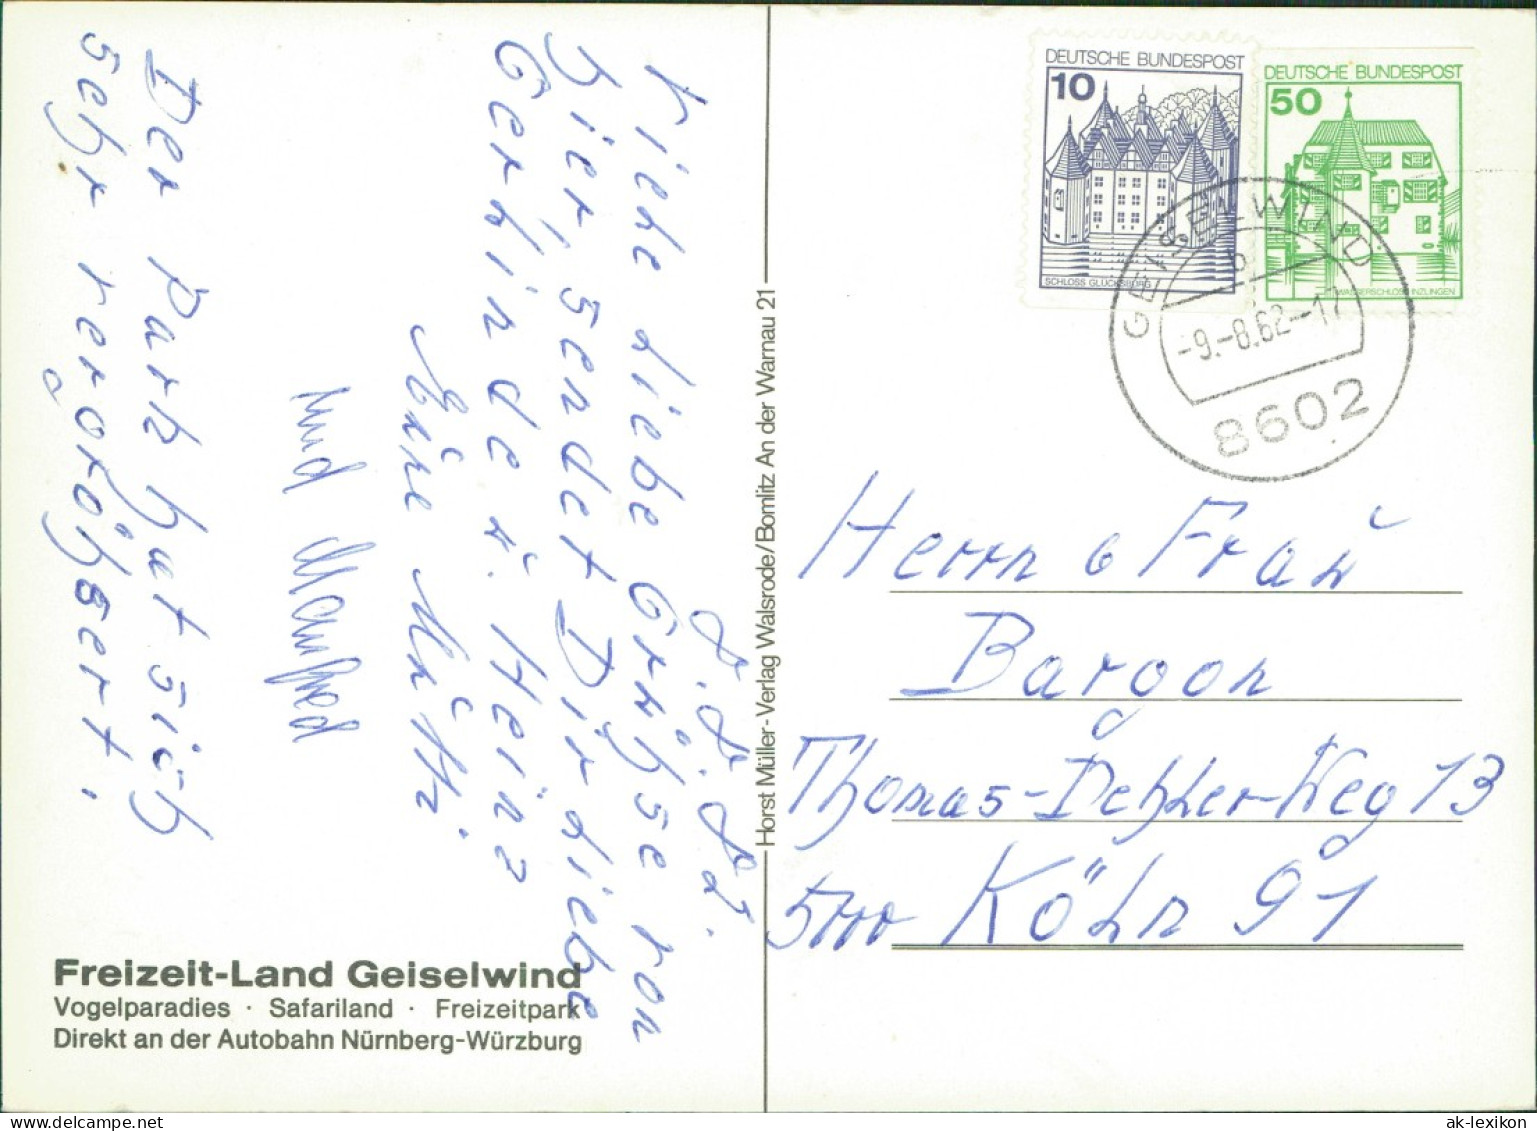 d. 8. 82.
Viele liebe Grüße von
hier, sendet Dir liebe
Gerlinde u. Heinz
Eure Mutti
und Manfred
Der Park hat sich
sehr vergrößert.
Freizeit-Land Geiselwind
Vogelparadies · Safariland · Freizeitpark
Direkt an der Autobahn Nürnberg-Würzburg
Horst Müller-Verlag Walsrode/Bomlitz An der Warnau 21
DEUTSCHE BUNDESPOST
10
SCHLOSS GLÜCKSBURG
DEUTSCHE BUNDESPOST
50
WASSERSCHLOSS INZLINGEN
GEISELWIND
b
-9.-8.82-17
8602
Herrn u Frau
Bargon
Thomas-Dehler-Weg 13
5000 Köln 91
ak-lexikon